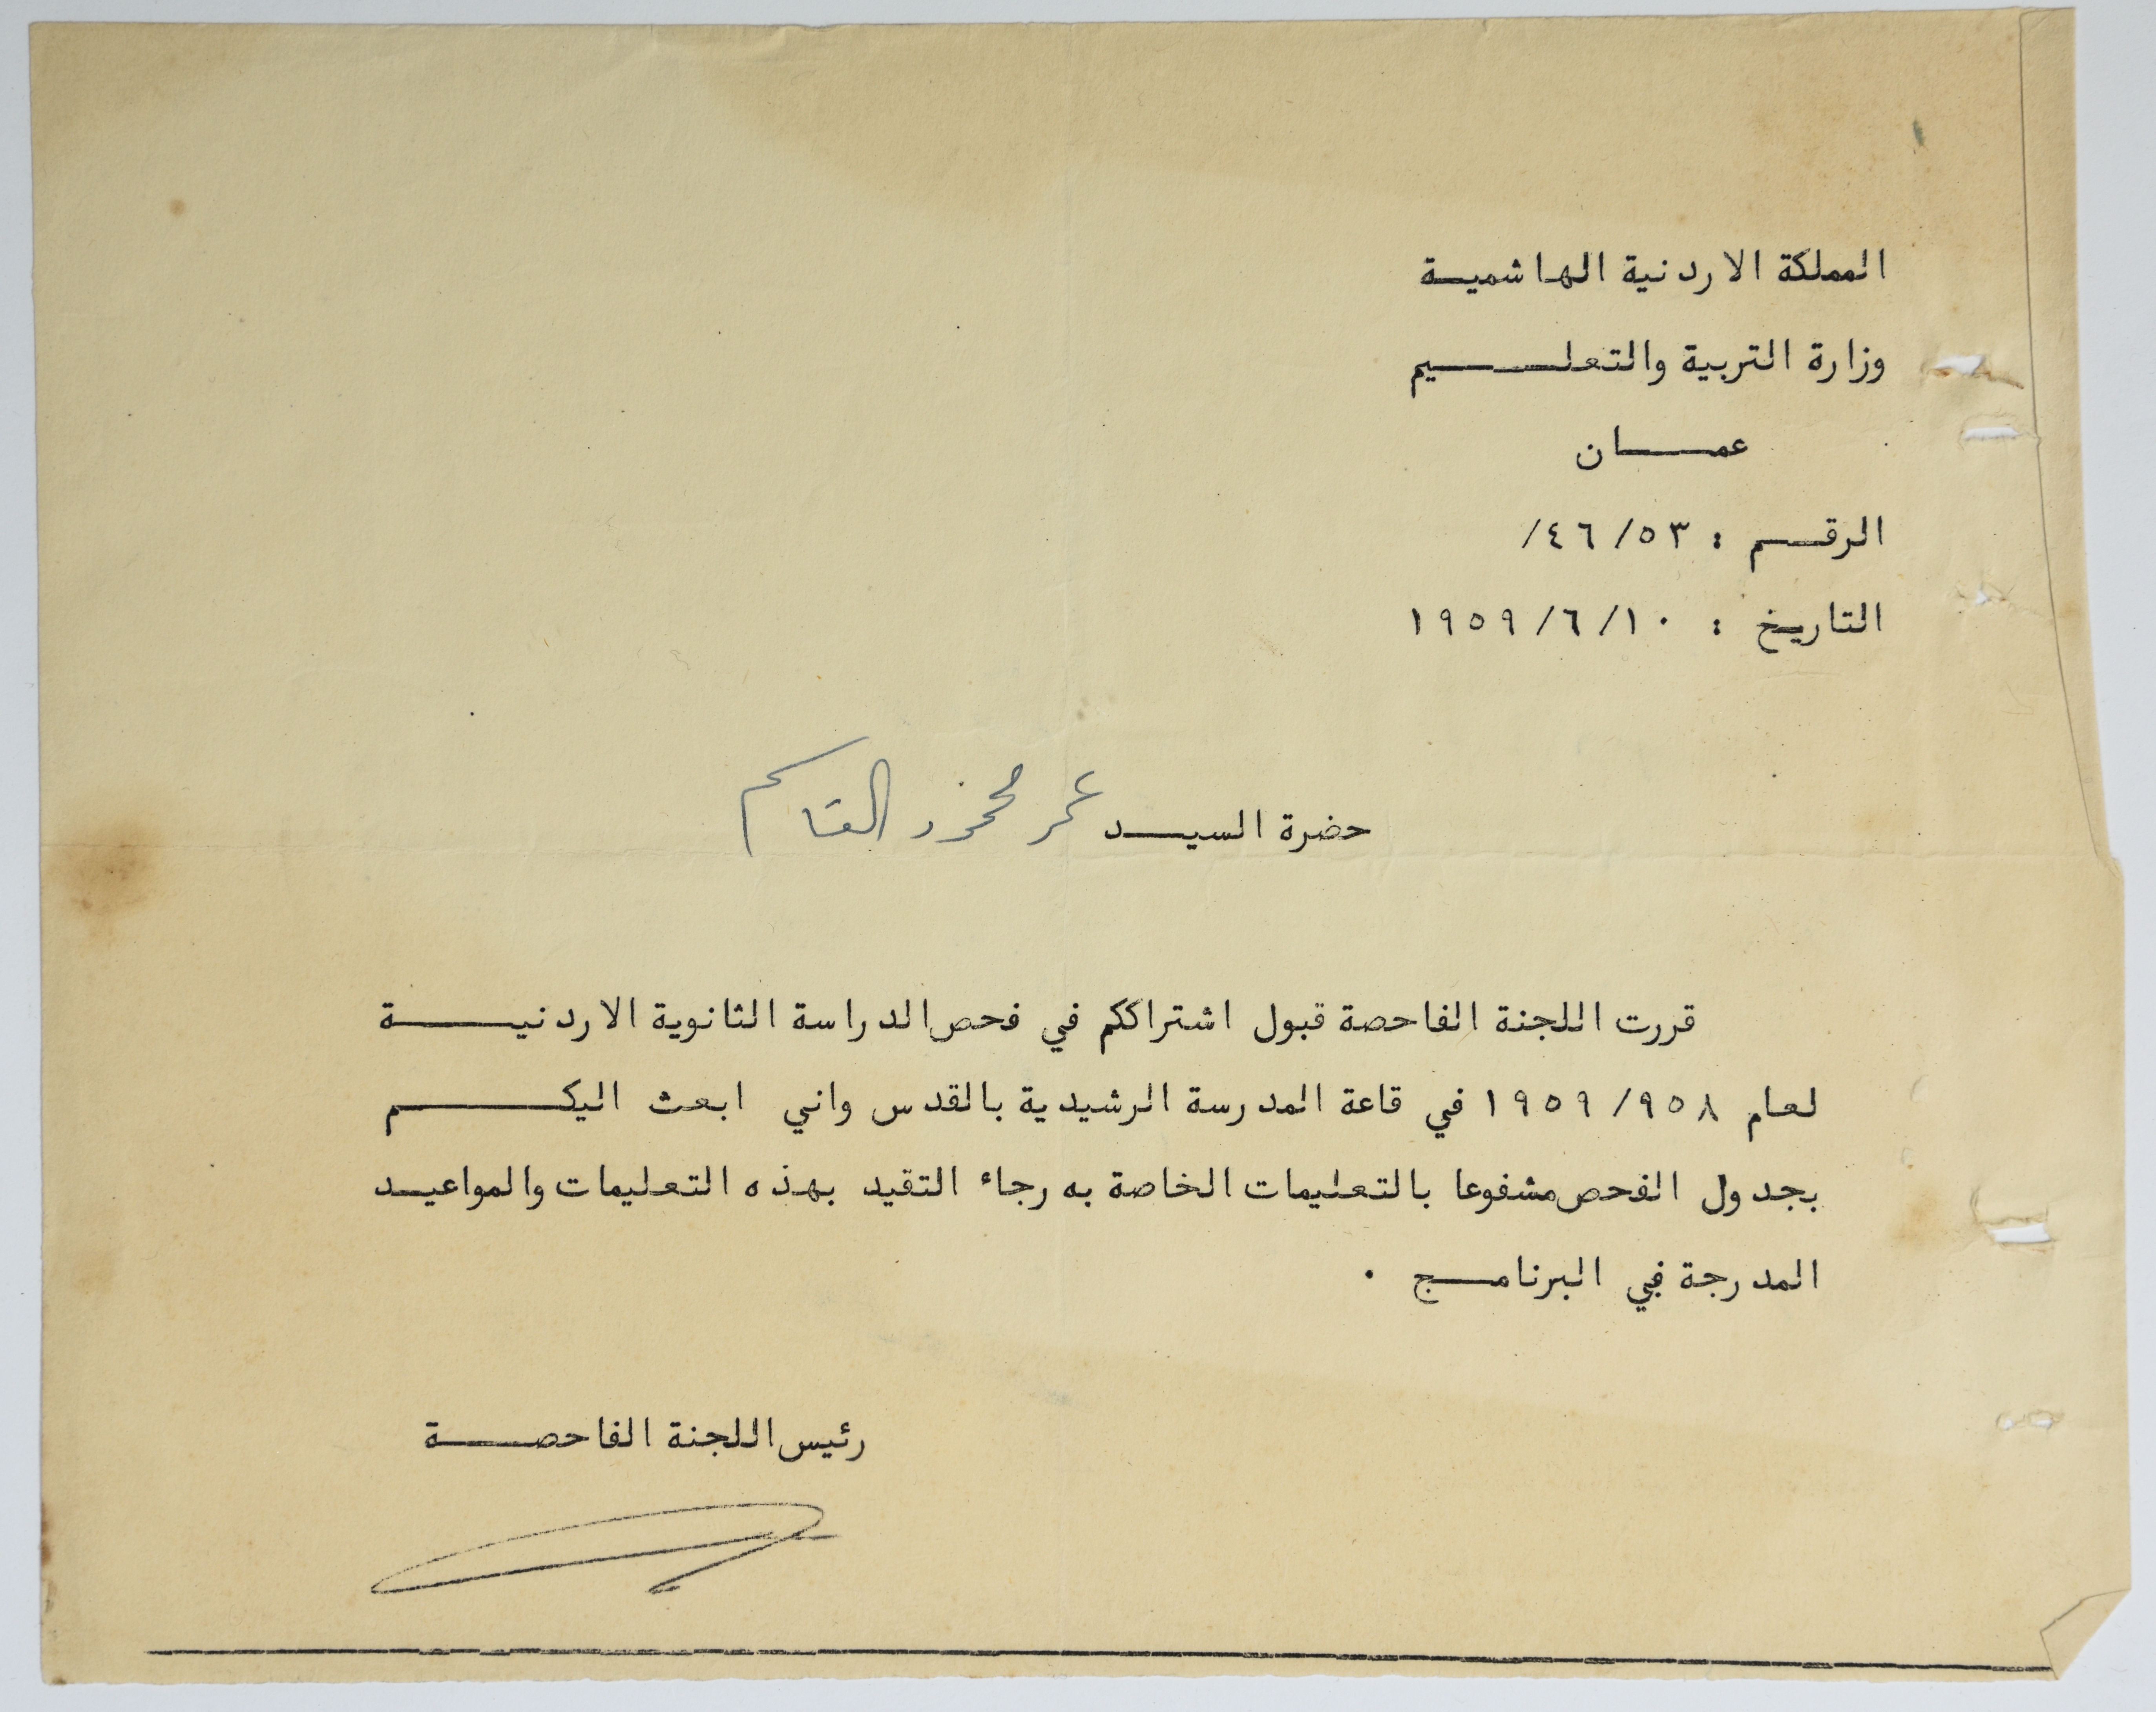 المملكة الاردنية الهاشميـة
وزارة التربية والتعلـــيم
عمـــان
الرقـم : ٥٣/ ٤٦/
التاريخ : ١٠/ ٦/ ١٩٥٩
حضرة السيـد عمر محمود القاسم
قررت اللجنة الفاحصة قبول اشتراككم في فحص الدراسة الثانوية الاردنيـــة
لعام ٩٥٨/ ١٩٥٩ في قاعة المدرسة الرشيدية بالقدس واني ابعث اليكـــم
بجدول الفحص مشفوعا بالتعليمات الخاصة به رجاء التقيد بهذه التعليمات والمواعيـد
المدرجة في البرنامـج .
رئيس اللجنة الفاحصـــة